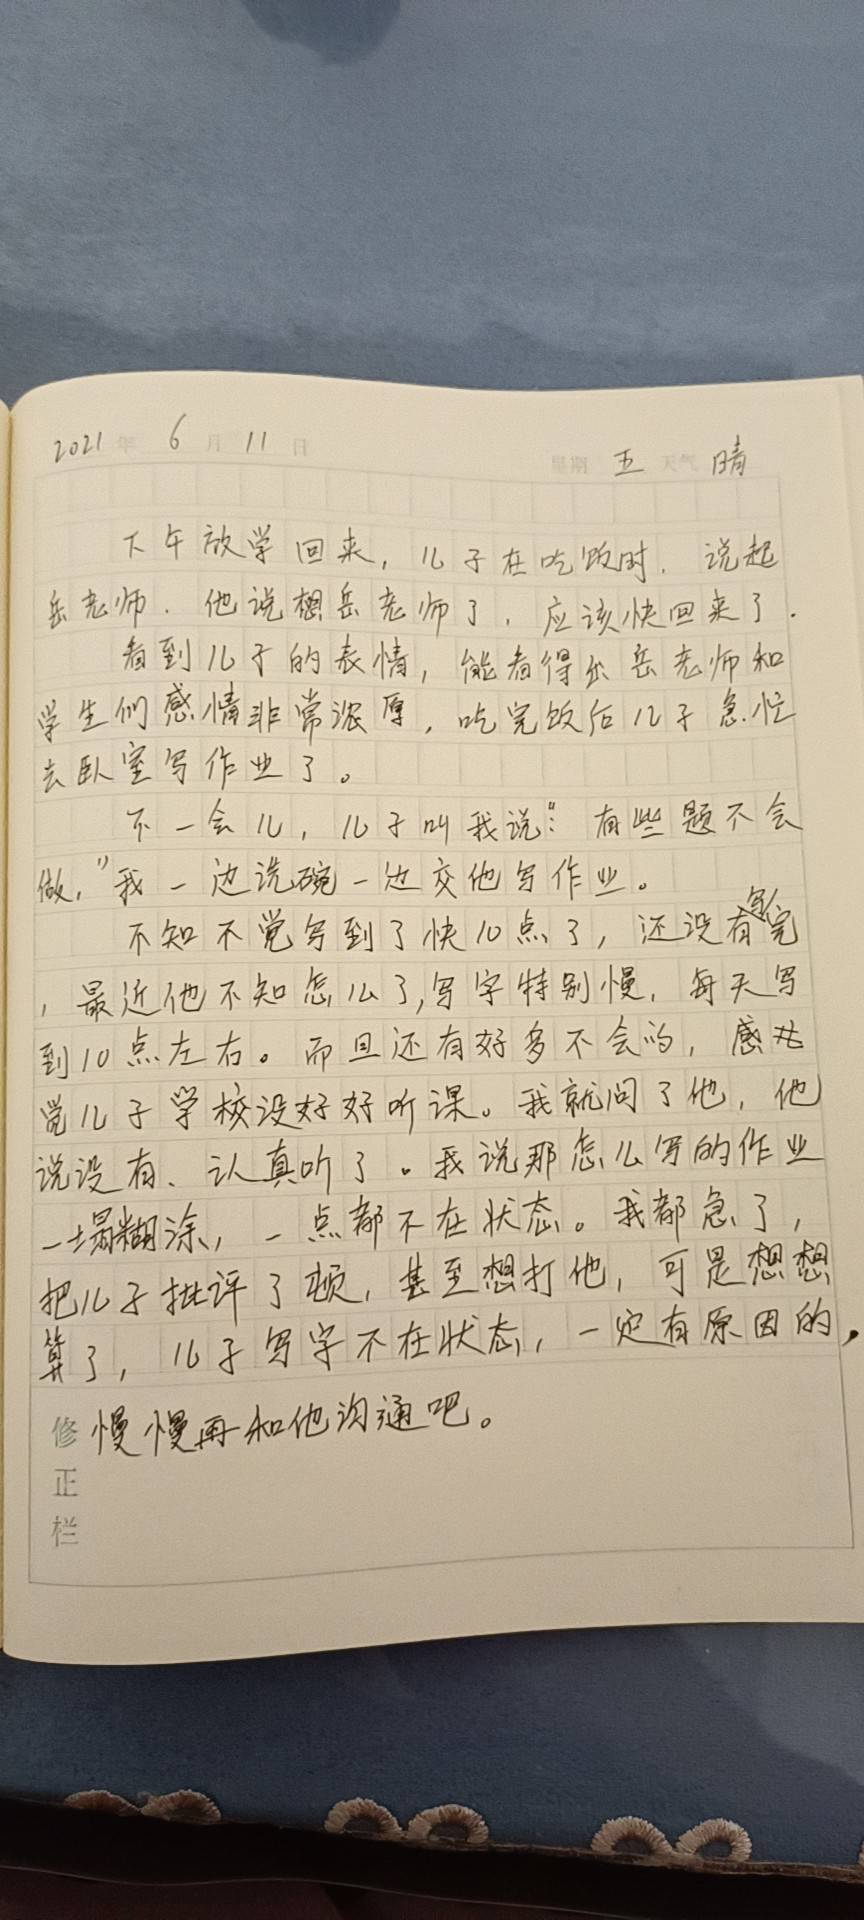 2021 年 6 月 11 日 星期 五 天气 晴
下午放学回来，儿子在吃饭时．说起
岳老师．他说想岳老师了．应该快回来了．
看到儿子的表情，能看得出岳老师和
学生们感情非常浓厚，吃完饭后儿子急忙
去卧室写作业了。
不一会儿，儿子叫我说：“有些题不会
做，”我一边洗碗一边交他写作业。
不知不觉写到了快10点了，还没有写完
，最近他不知怎么了，写字特别慢．每天写
到10点左右。而且还有好多不会的，感
觉儿子学校没好好听课。我就问了他，他
说没有、认真听了。我说那怎么写的作业
一塌糊涂，一点都不在状态。我都急了，
把儿子批评了顿，甚至想打他，可是想想
算了，儿子写字不在状态，一定有原因的，
慢慢再和他沟通吧。
修正栏